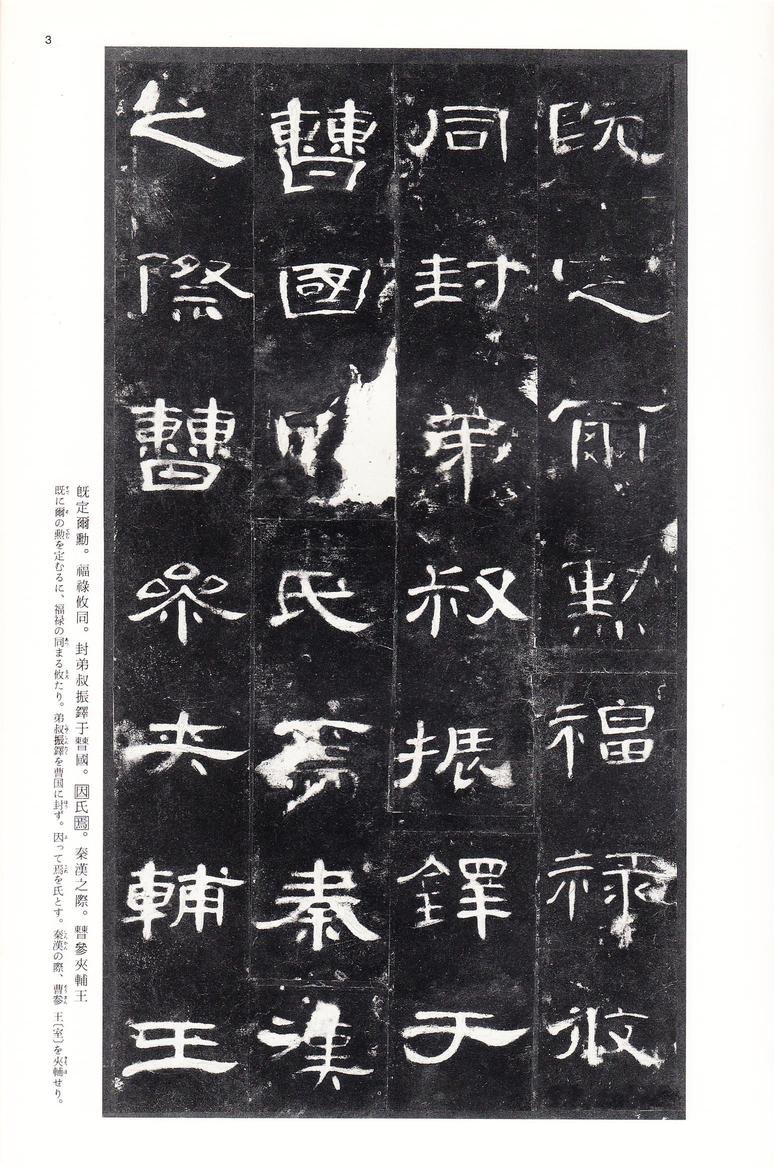 3
既定爾勳福祿攸
同封弟叔振鐸于
𣍘國因氏焉秦漢
之際𣍘參夾輔王
既定爾勳。福祿攸同。封弟叔振鐸于𣍘國。因氏焉。秦漢之際。𣍘參夾輔王
既に爾の勲を定むるに、福禄の同まる攸たり。弟叔振鐸を曹国に封ず。因って焉を氏とす。秦漢の際、曹参 王〔室〕を夾輔せり。